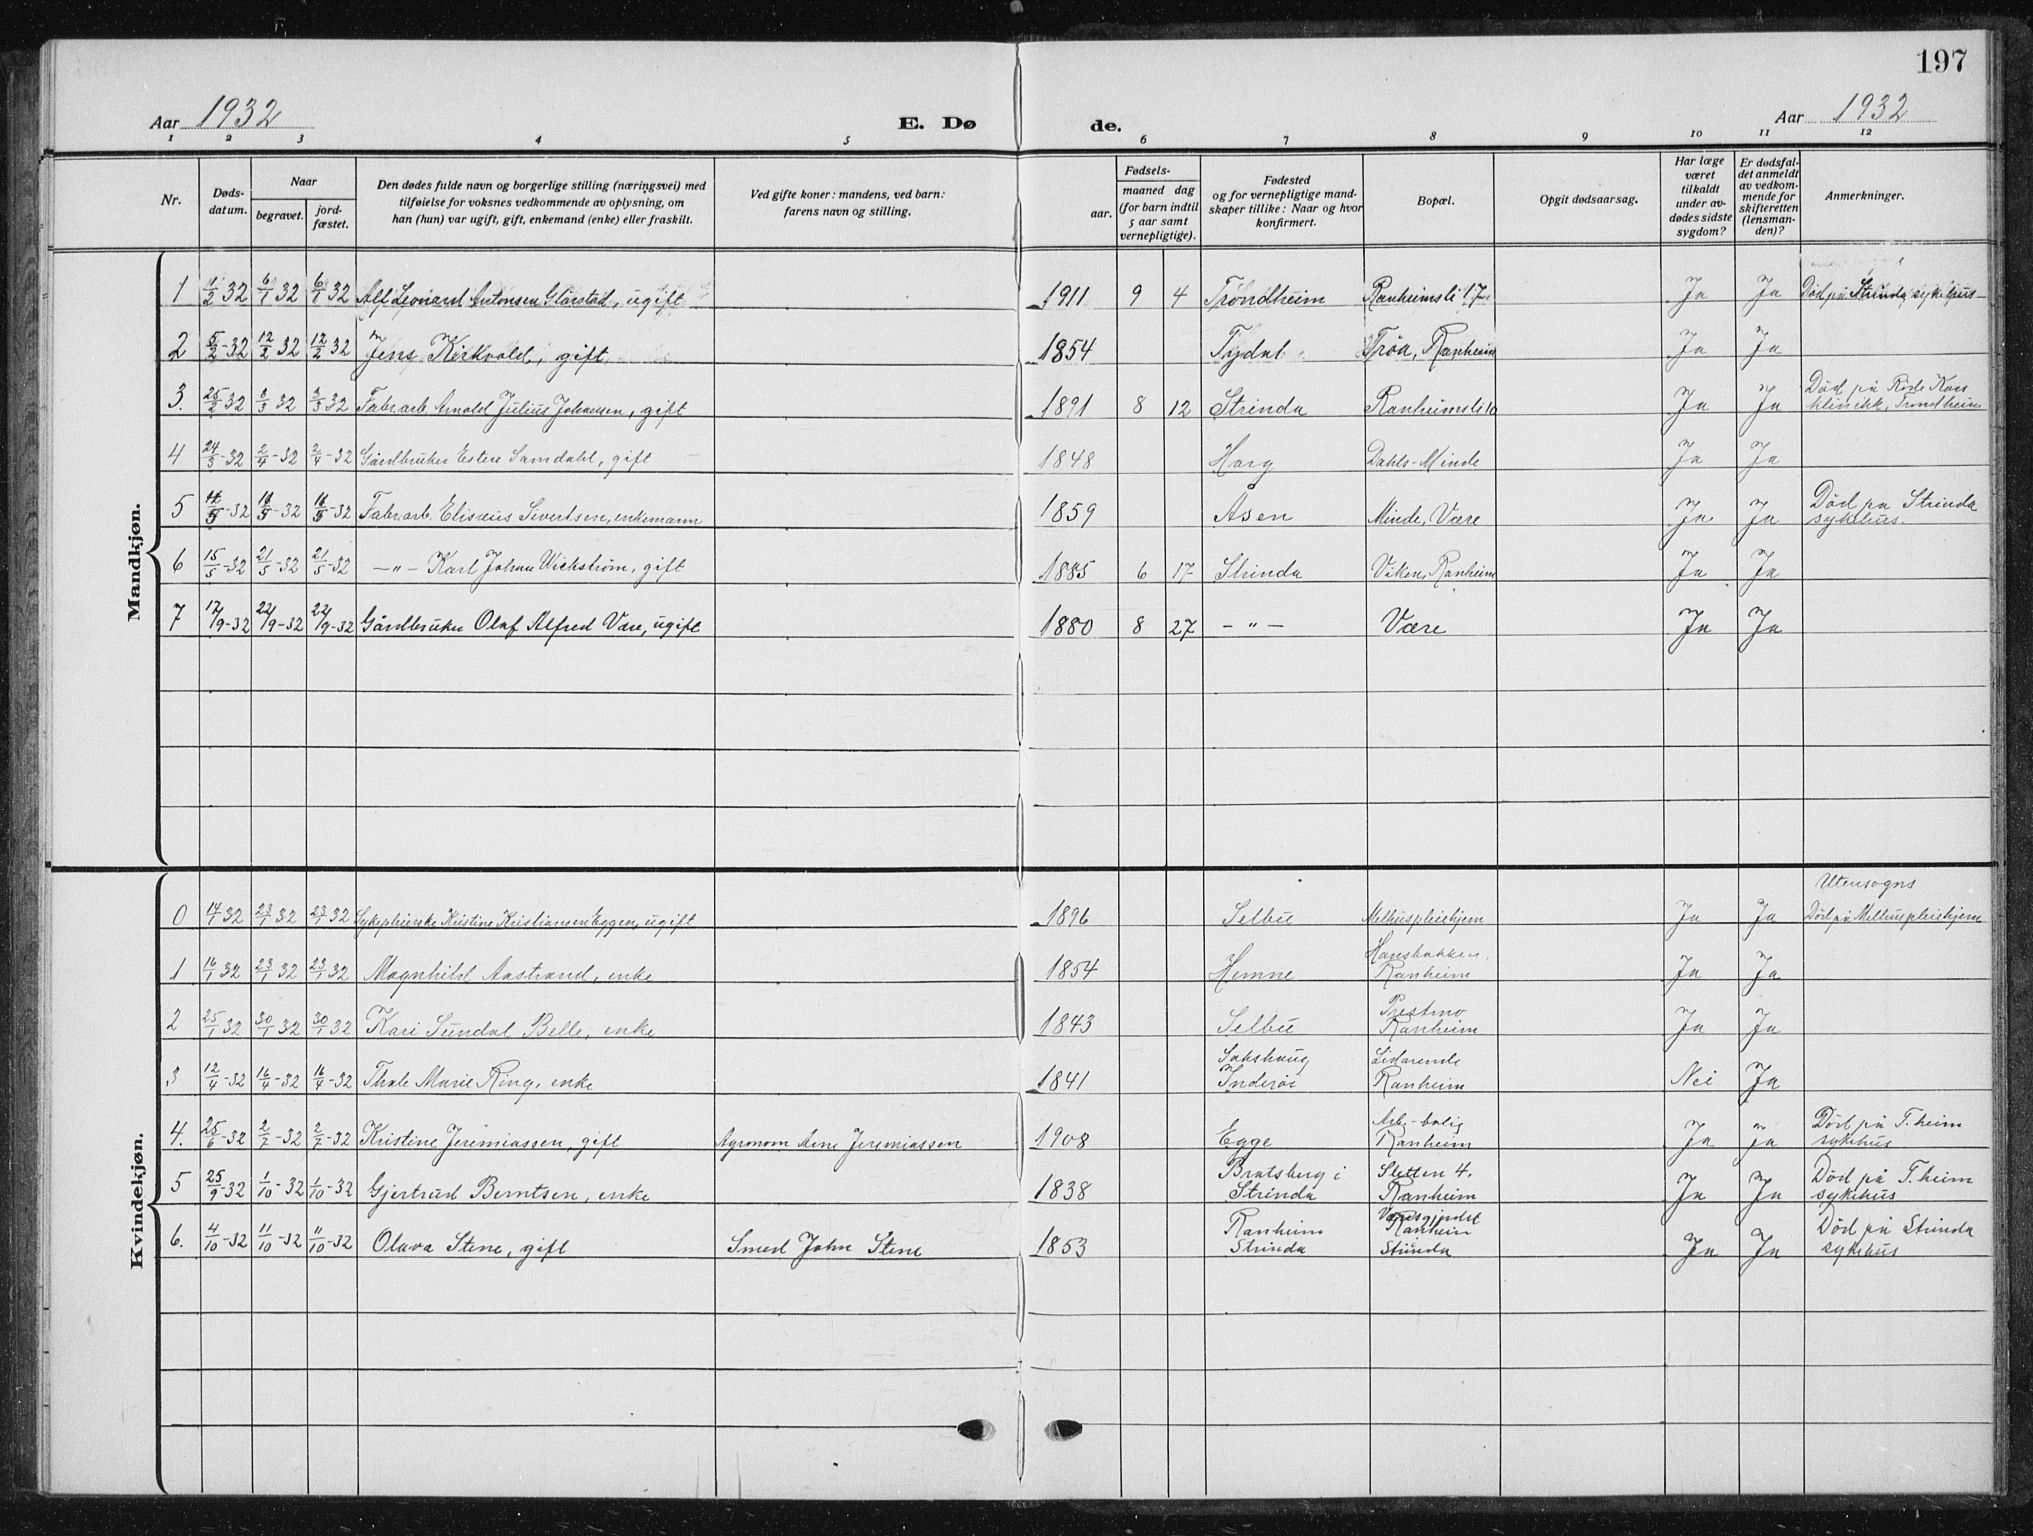 197
Aar 1932 E. Dø de. Aar 1932
1 2 3 4 5 6 7 8 9 10 11 12
Nr.
Døds-
datum.
Naar
begravet.
jord-
fæstet.
Den dødes fulde navn og borgerlige stilling (næringsvei) med
tilføielse for voksnes vedkommende av oplysning, om
han (hun) var ugift, gift, enkemand (enke) eller fraskilt.
Ved gifte koner: mandens, ved barn:
farens navn og stilling.
Fødsels-
aar.
maaned dag
(for barn indtil
5 aar samt
vernepligtige).
Fødested
og for vernepligtige mand-
skaper tillike: Naar og hvor
konfirmert.
Bopæl.
Opgit dødsaarsag.
Har læge
været
tilkaldt
under av-
dødes sidste
sygdom?
Er dødsfal-
det anmeldt
av vedkom-
mende for
skifteretten
(lensman-
den)?
Anmerkninger.
Mandkjøn.
1 32 6/1 32 6/1 32 Alf Leonard Antonsen Glørstad, ugift 1911 9 4 Trondheim Ranheimsli 17 Ja Ja Død på Strinda sykehus
2 5/2-32 12/2 32 12/2 32 Jens Kirkvold, gift 1854 Tydal Trøa, Ranheim Ja Ja
3. 25/2 32 3/3 32 3/3 32 Fabrarb. Arnold Julius Johansen, gift 1891 8 12 Strinda Ranheimsli 10 Ja Ja Død på Røde Kors
klinikk, Trondheim
4 24/3-32 2/4-32 2/4-32 Gårdbruker Samdahl, gift 1848 Horg Dahls-Minde Ja Ja
5 11/5-32 16/5-32 16/5-32 Fabrarb. Elisæus Sivertsen, enkemann 1859 Åsen Minde, Være Ja Ja Død på Strinda
sykehus.
6 15/5-32 21/5-32 21/5-32 -"- Karl Johan Wickstrøm, gift 1885 6 17 Strinda Viken, Ranheim Ja Ja
7 17/9-32 22/9-32 22/9-32 Gårdbruker Olaf Alfred Være, ugift 1880 8 27 -"- Være Ja Ja
Kvindekjøn.
0 14/1 32 23/1 32 23/1 32 Sykepleierske Kristine Kristiansen Eggen, ugift 1896 Selbu Melhuspleiehjem Ja Ja Utensogns
Død på Melhuspleiehjem
1 16/1 32 23/1 32 23/1 32 Magnhild Aastrand, enke 1854 Hemne Hansbakken,
Ranheim Ja Ja
2 25/1 32 30/1 32 30/1 32 Kari Sundal Belle, enke 1843 Selbu Prestmo
Ranheim Ja Ja
3 12/4-32 16/4-32 16/4-32 Thale Marie Ring, enke 1841 Sakshaug
Inderøi Lidarende
Ranheim Nei Ja
4. 25/6-32 2/7-32 2/7-32 Kristine Jeremiassen, gift Agronom Arne Jeremiassen 1908 Egge Arb.-bolig
Ranheim Ja Ja Død på T.heim
sykehus
5 25/9-32 1/10-32 1/10-32 Gjertrud Berntsen, enke 1838 Bratsberg i
Strinda Sletten 4,
Ranheim Ja Ja Død på T.heim
sykehus
6. 4/10-32 11/10-32 11/10-32 Olava Stene, gift Smed John Stene 1853 Ranheim
Strinda Væresgjerdet
Ranheim
Strinda Ja Ja Død på Strinda
sykehus